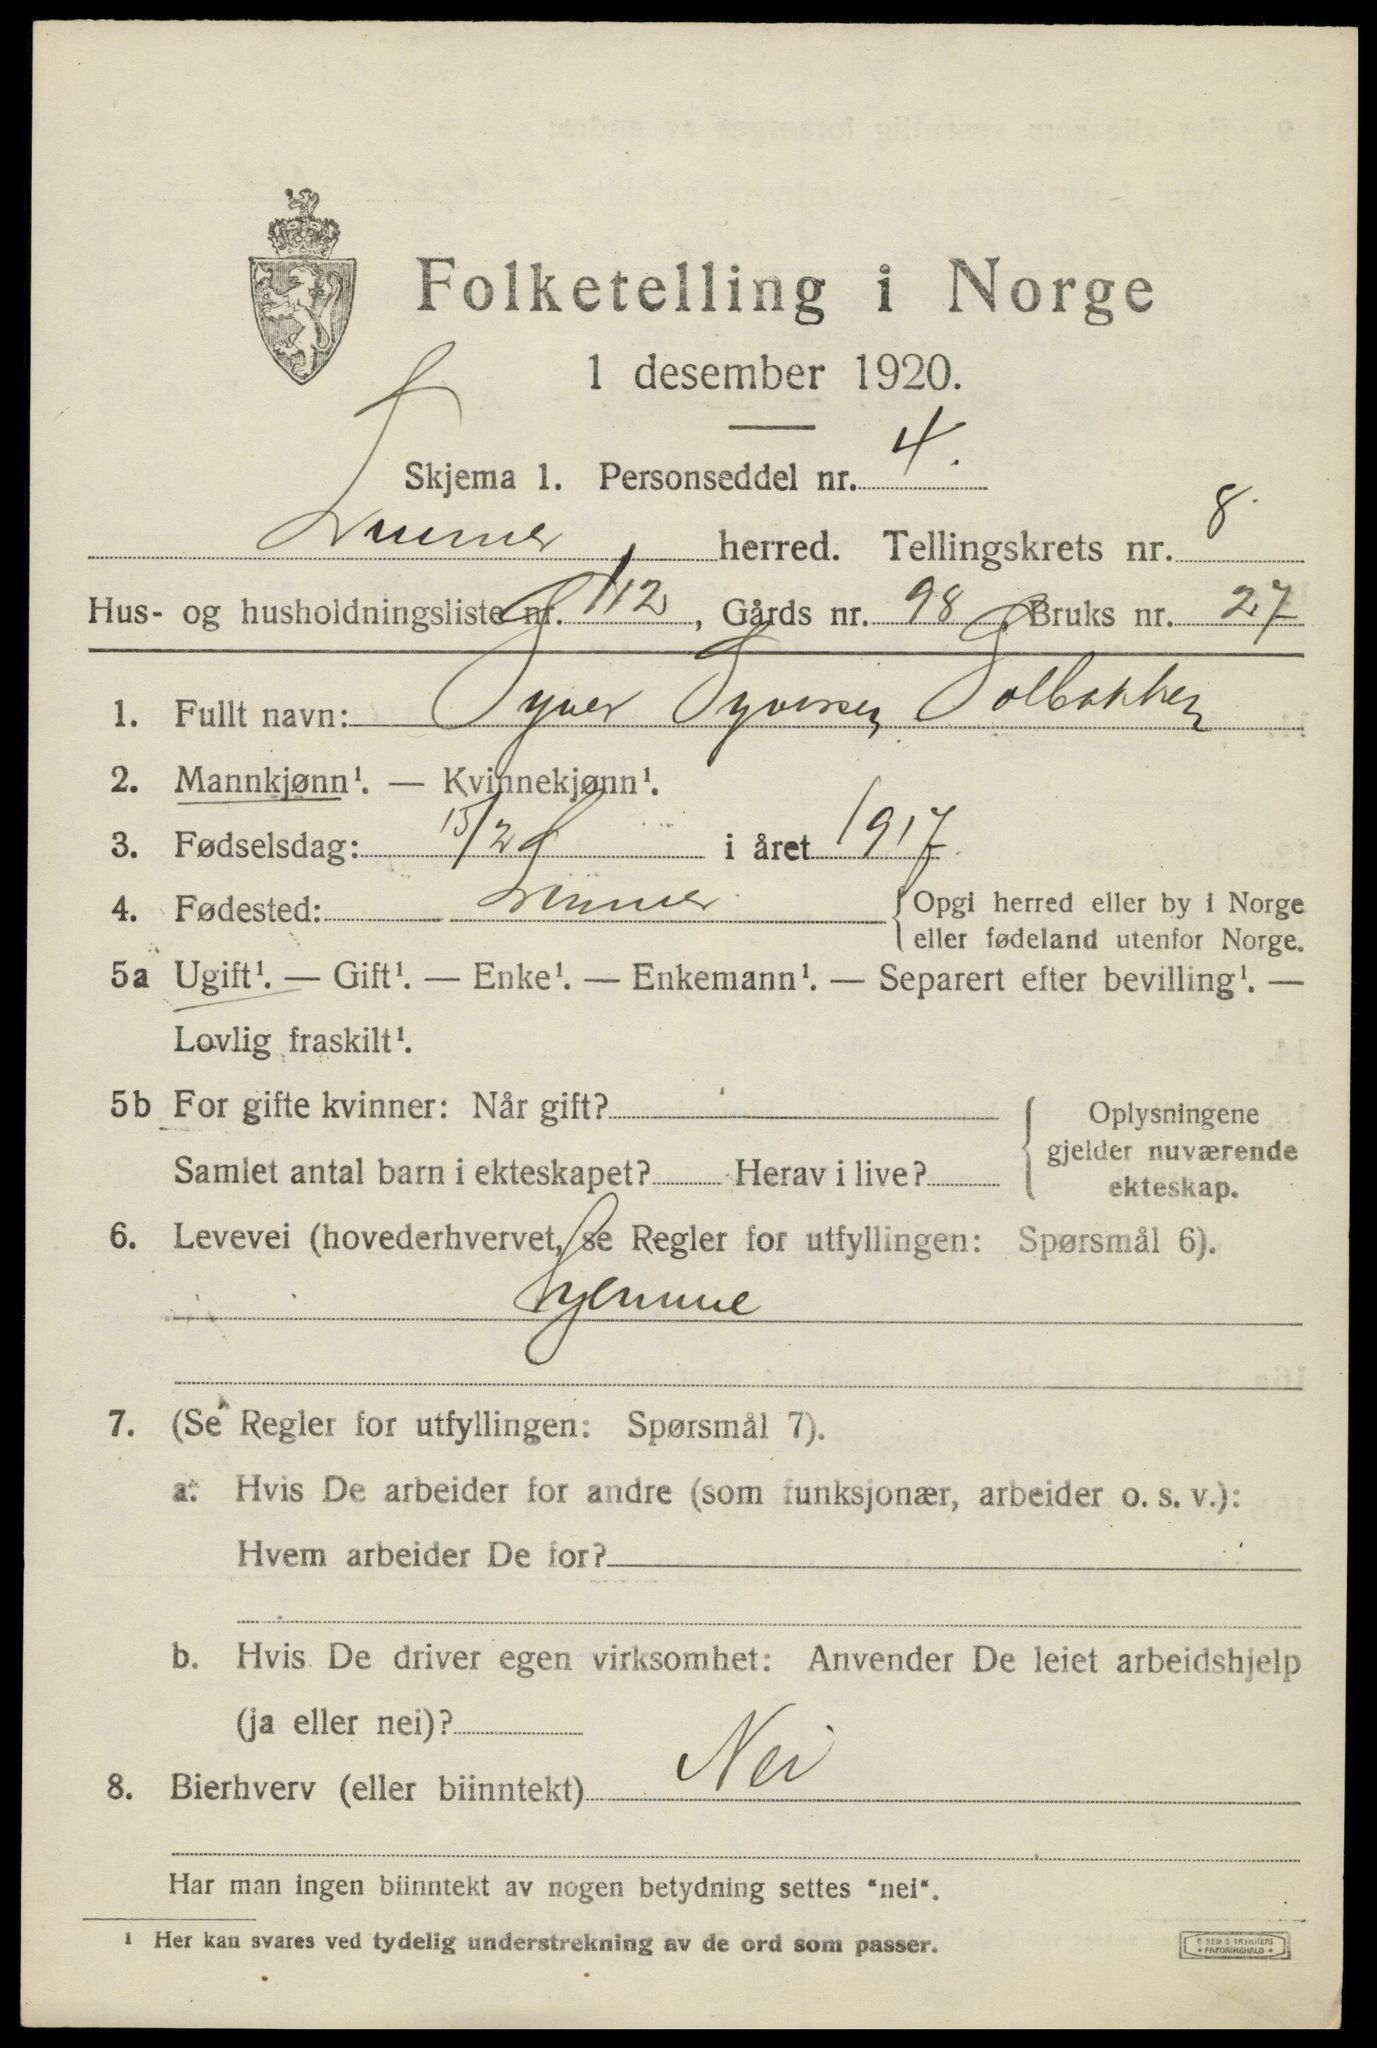 Folketelling i Norge
1 desember 1920.
Skjema 1. Personseddel nr. 4.
Lunner herred. Tellingskrets nr. 8
Hus- og husholdningsliste nr. 112, Gårds nr. 98, Bruks nr. 27
1. Fullt navn: Syver Syversen Solbakken
2. Mannkjønn¹. — Kvinnekjønn¹.
3. Fødselsdag: 15/2 i året 1917.
4. Fødested: Lunner {Opgi herred eller by i Norge
eller fødeland utenfor Norge.
5a Ugift¹. — Gift¹. — Enke¹. — Enkemann¹. — Separert efter bevilling¹. —
Lovlig fraskilt¹.
5b For gifte kvinner: Når gift?
Samlet antal barn i ekteskapet? Herav i live?
Oplysningene
gjelder nuværende
ekteskap.
6. Levevei (hovederhvervet, se Regler for utfyllingen: Spørsmål 6).
Hjemme
7. (Se Regler for utfyllingen: Spørsmål 7).
a. Hvis De arbeider for andre (som funksjonær, arbeider o. s. v.):
Hvem arbeider De for?
b. Hvis De driver egen virksomhet: Anvender De leiet arbeidshjelp
(ja eller nei)?
8. Bierhverv (eller biinntekt) Nei
Har man ingen biinntekt av nogen betydning settes "nei".
¹ Her kan svares ved tydelig understrekning av de ord som passer.